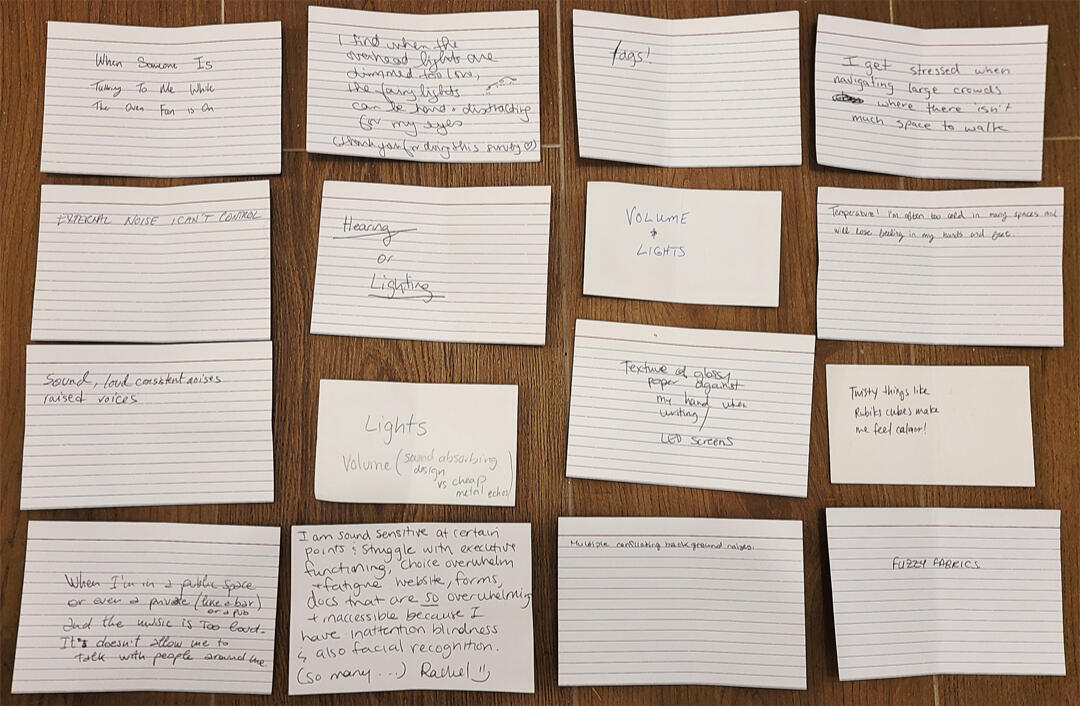 When Someone Is
Talking To Me While
The Oven Fan is On
I find when the
overhead lights are
dimmed too low,
the fairy lights
can be hard + distracting
for my eyes
(thank you for doing this survey ♡)
tags!
I get stressed when
navigating large crowds
where there isn't
much space to walk
EXTERNAL NOISE I CAN'T CONTROL
Hearing
or
Lighting
VOLUME
+
LIGHTS
Temperature! I'm often too cold in many spaces and
will lose feeling in my hands and feet.
Sound, loud consistent noises
raised voices
Lights
Volume (sound absorbing
design
vs cheap
metal echos)
Texture of glossy
paper against
my hand when
writing/
LED screens
Twisty things like
Rubiks cubes make
me feel calmer!
When I'm in a public space
or even a private (like a bar)
or a pub
and the music is Too loud.
It's doesn't allow me to
talk with people around me.
I am sound sensitive at certain
points & struggle with executive
functioning, choice overwhelm
+ fatigue website, forms,
docs that are so overwhelming
+ inaccessible because I
have inattention blindness
& also facial recognition.
(so many...) Rachel :)
Multiple conflicting background noises.
FUZZY FABRICS